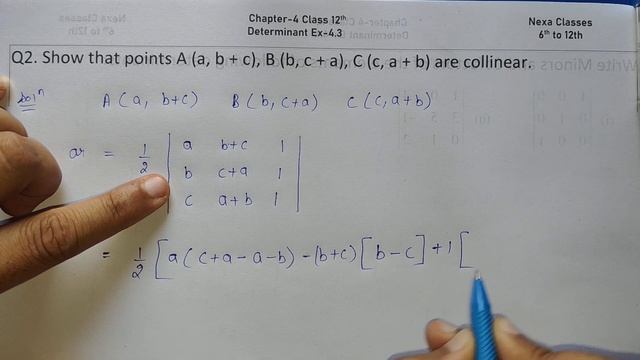 Nexa Classes
6th to 12th
Chapter-4 Class 12th
Determinant Ex-4.3
Nexa Classes
6th to 12th
Q2. Show that points A (a, b + c), B (b, c + a), C (c, a + b) are collinear.
Solⁿ A (a, b+c) B (b, c+a) C (c, a+b)
ar = 1/2 | a b+c 1 |
| b c+a 1 |
| c a+b 1 |
= 1/2 [ a (c+a-a-b) - (b+c) [b-c] + 1 [